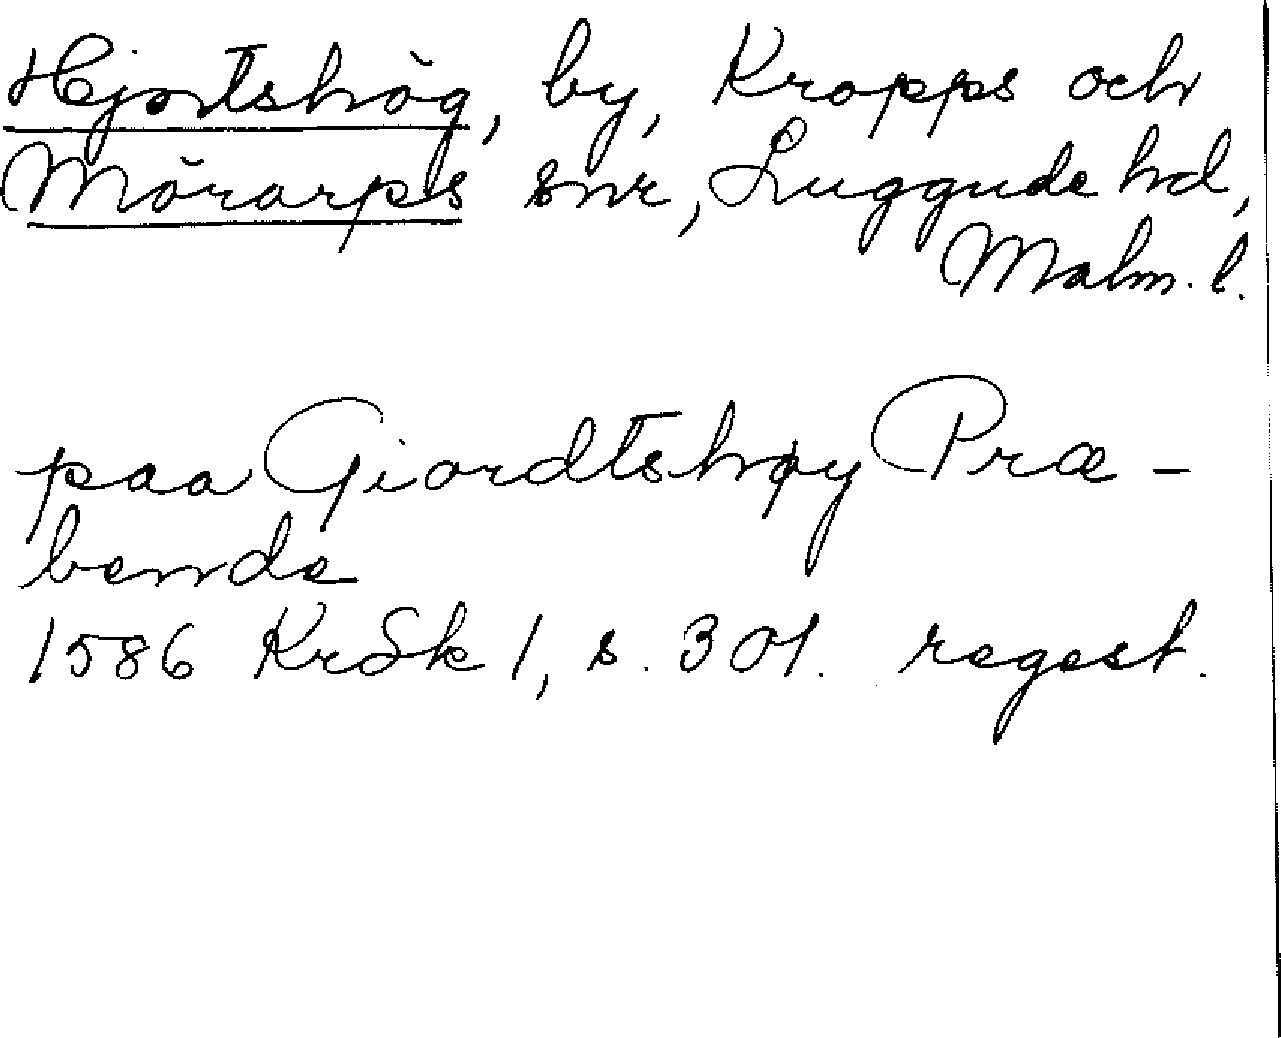 Hjortshög, by, Kropps och
Mörarps snr, Luggude hd,
Malm. l.
paa Giordtshøy Præ-
bende
1586 KrSk 1, s. 301. regest.